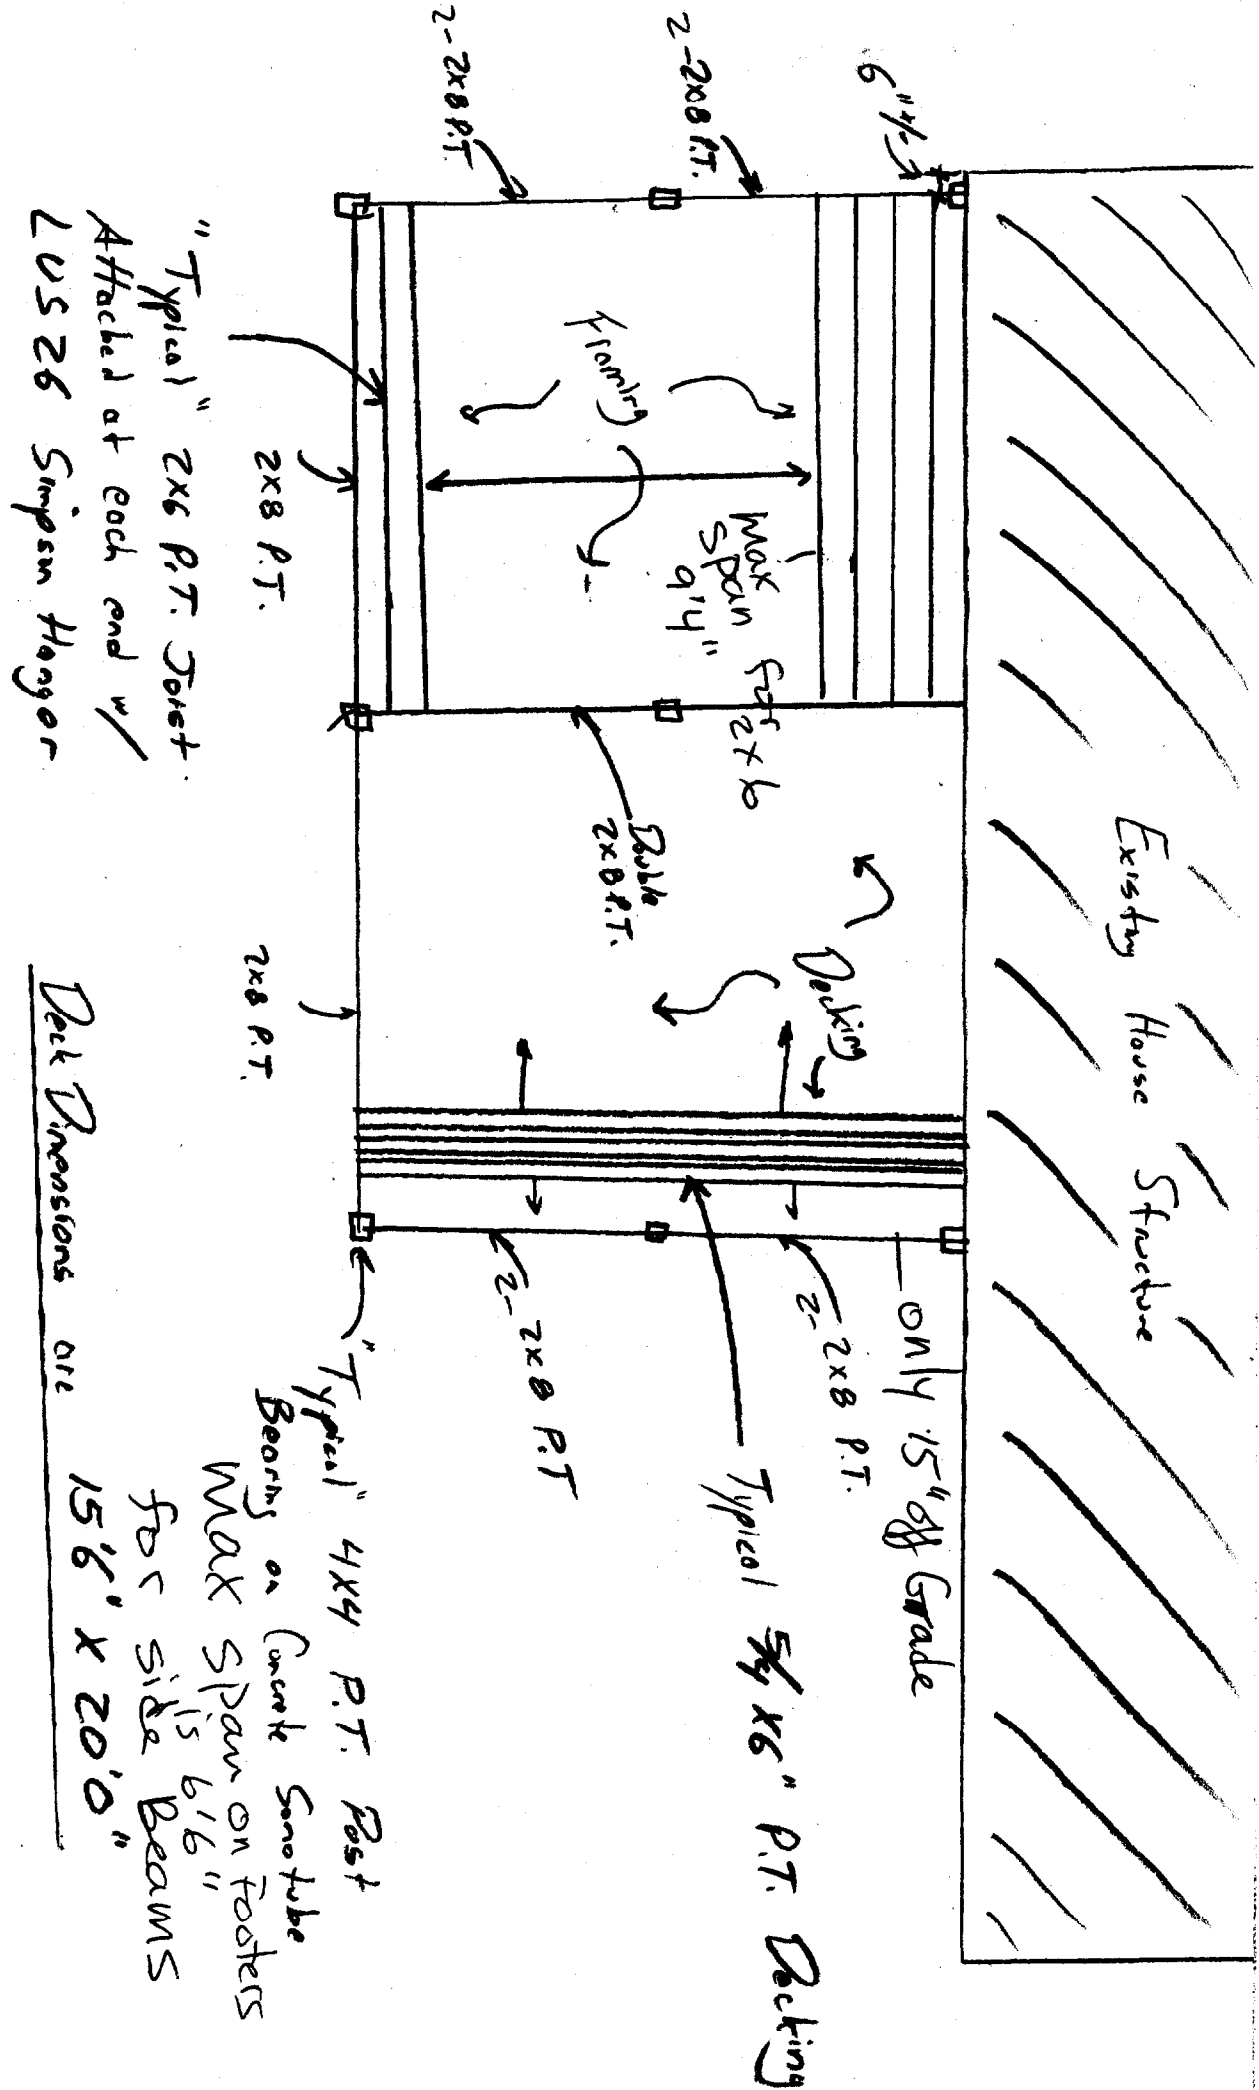 Existing House Structure
6" +/-
2-2x8 P.T.
2-2x8 P.T.
Framing
Max
span
9'4"
for
2x6
Double
2x8 P.T.
Decking
only 15" off Grade
2-2x8 P.T.
2-2x8 P.T
Typical 5/4 x6" P.T. Decking
2x8 P.T.
2x8 P.T.
"Typical" 2x6 P.T. Joist
Attached at each end w/
LUS 26 Simpson Hanger
"Typical" 4x4 P.T. Post
Bearing on Concrete Sonotube
Max span on footers
is 6'6"
for side Beams
Deck Dimensions are 15'6" x 20'0"